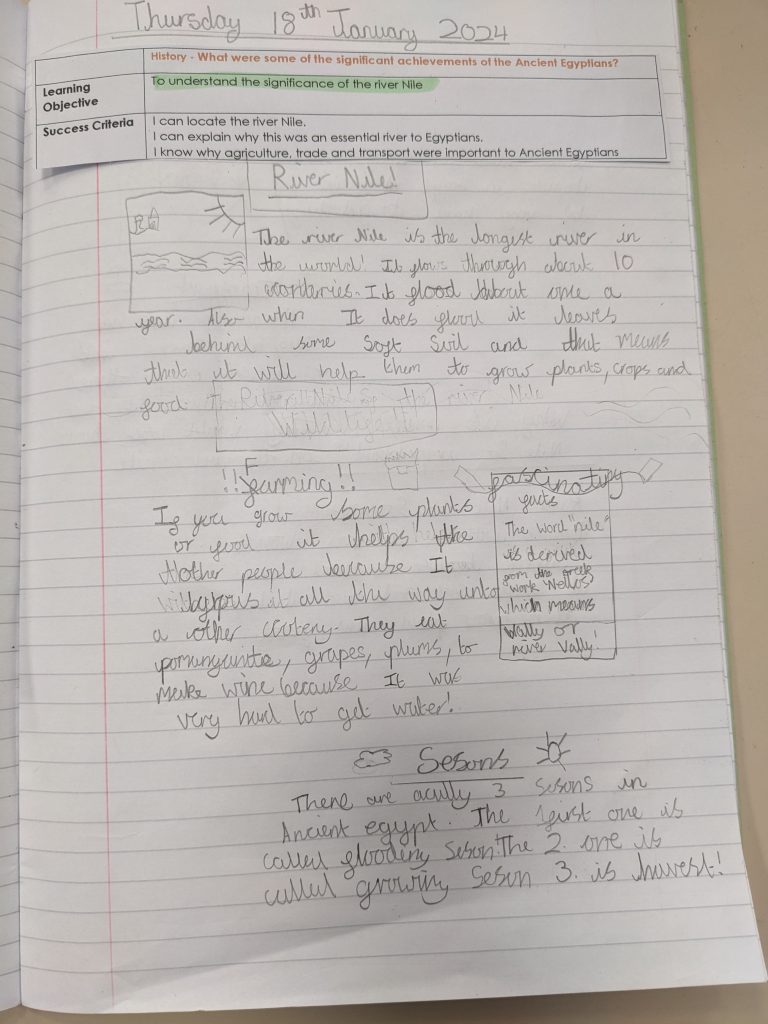 Thursday 18th January 2024
History - What were some of the significant achievements of the Ancient Egyptians?
Learning Objective
To understand the significance of the river Nile
Success Criteria
I can locate the river Nile.
I can explain why this was an essential river to Egyptians.
I know why agriculture, trade and transport were important to Ancient Egyptians
River Nile!
The river Nile is the longest river in
the world! It flows through about 10
It flood about one a
year. Also when It does flood it leaves
behind some soft soil and that means
that it will help them to grow plants, crops and
food.
the river Nile
!! Farming!!
If you grow some plants
or food it helps the
other people because It
it all the way unto
a other They eat
grapes, plums, to
make wine because It was
very hard to get water!
fascinating
facts
The word "nile"
is derived
from the greek
work Neilos
which means
Vally or
river Vally!
Sesons
There are acully 3 sesons in
Ancient egypt. The first one is
called floodeny Seson! The 2. one is
called growing Seson 3. is harvest!